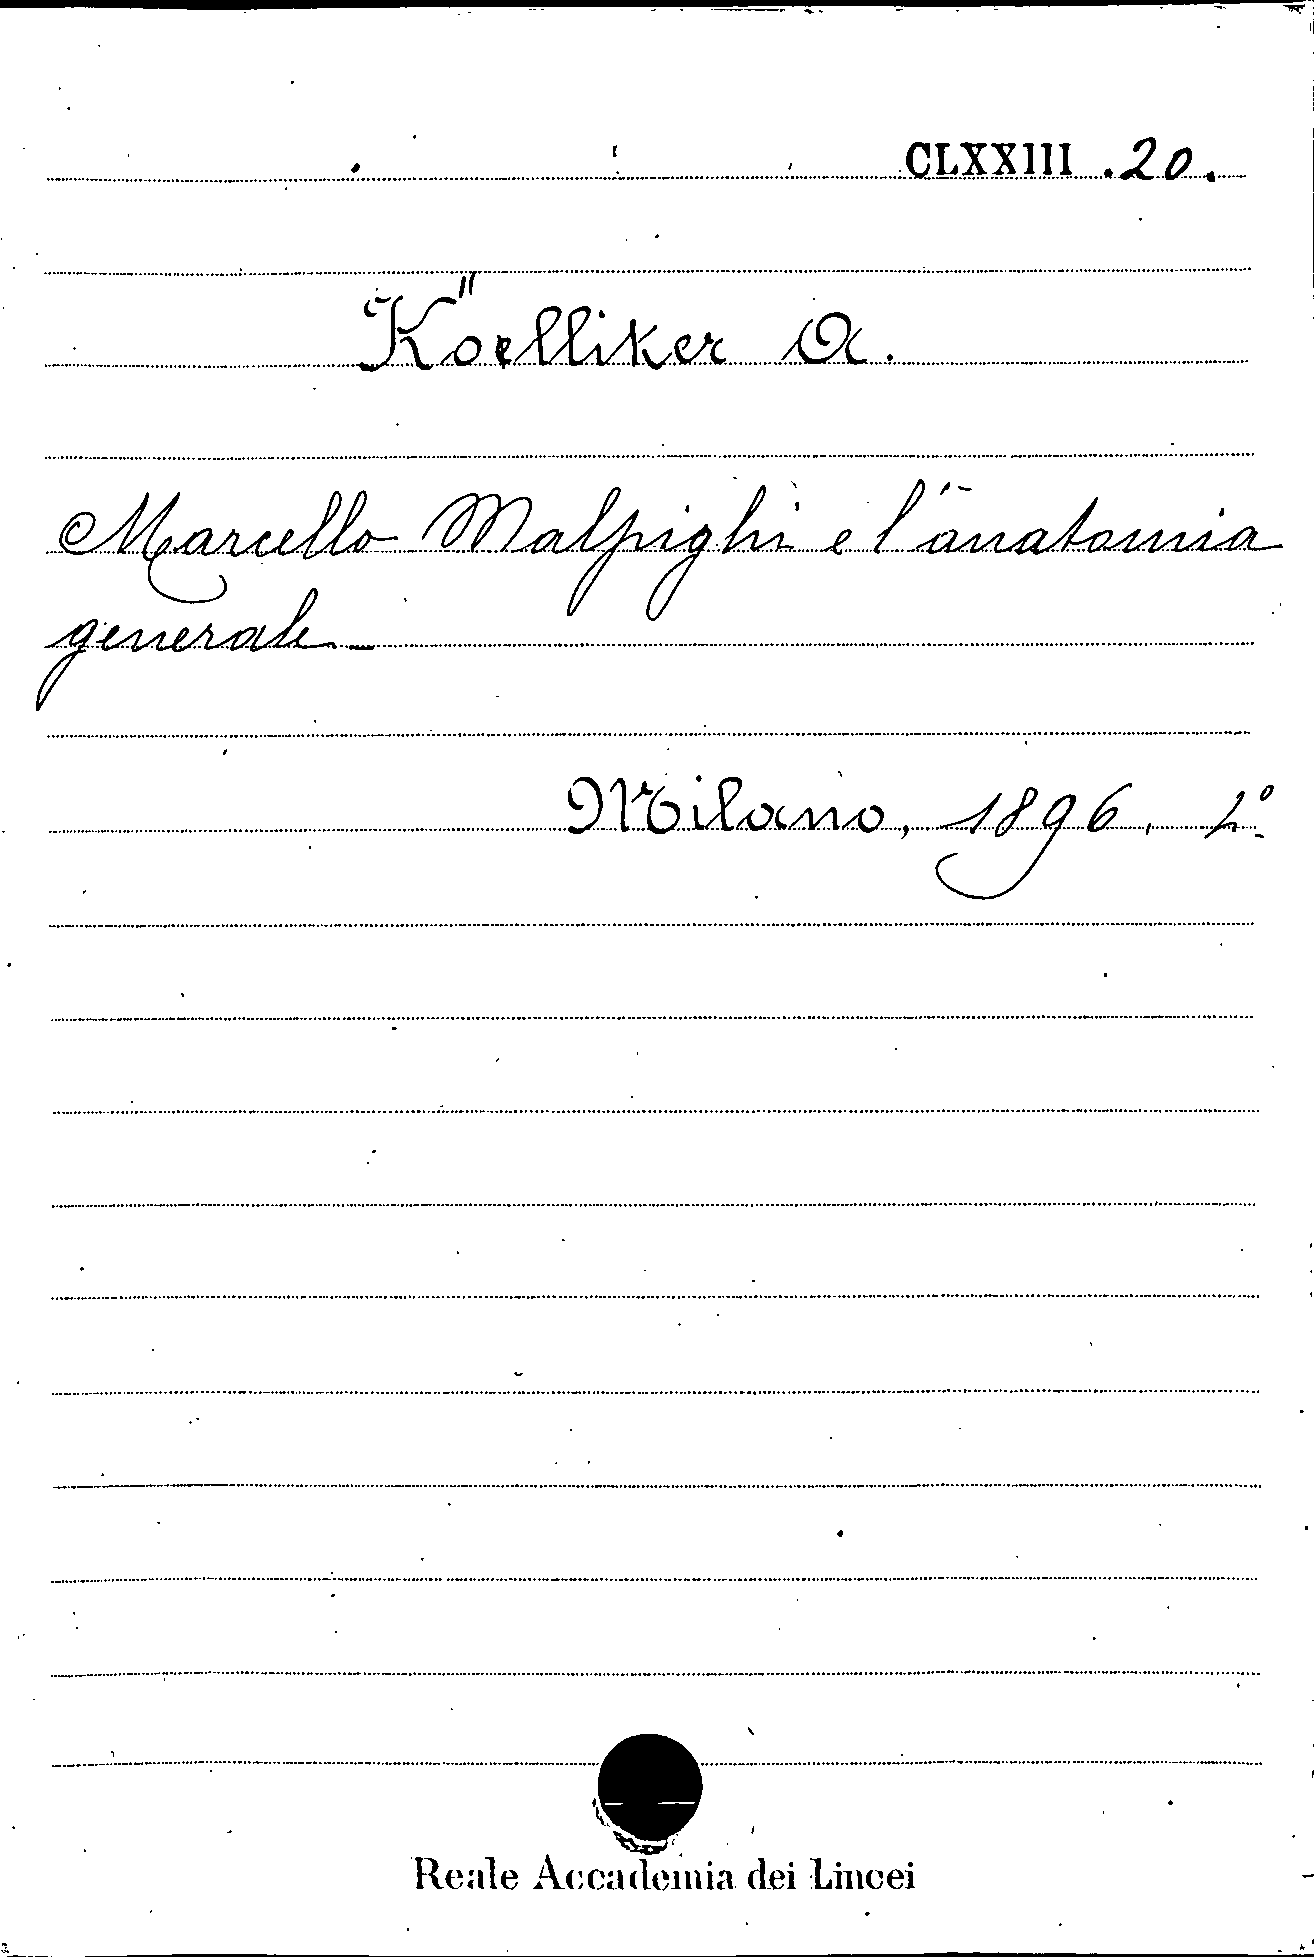 CLXXIII .20.
Köelliker A.
Marcello Malpighi e l'anatomia
generale
Milano, 1896,
Reale Accademia dei Lincei